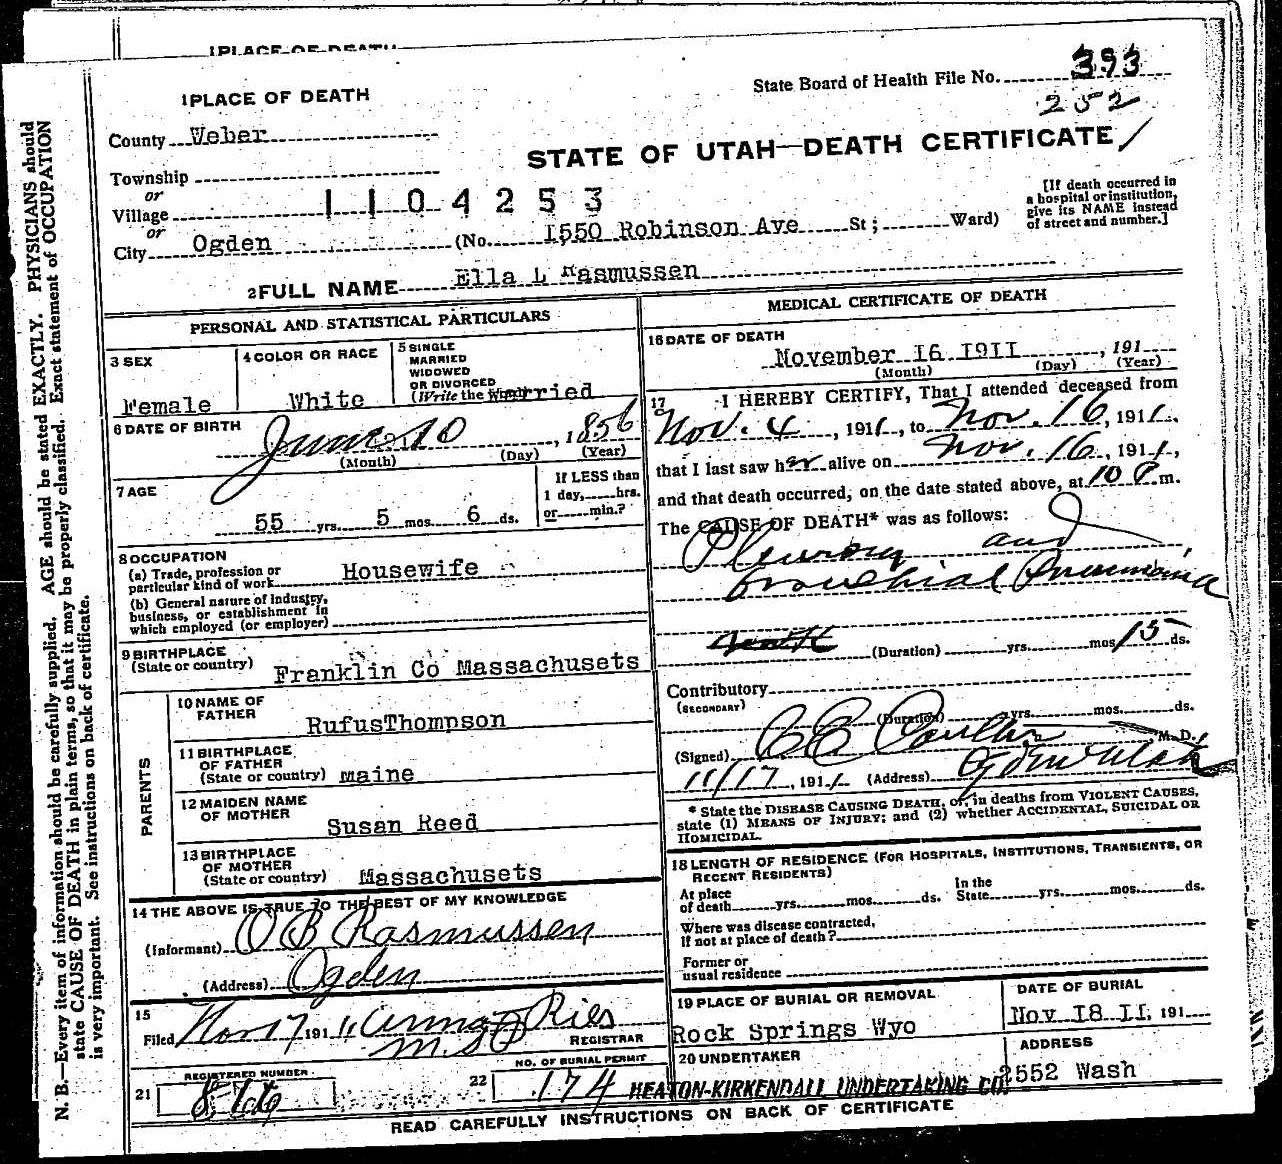 1 PLACE OF DEATH
State Board of Health File No. 393
252
1 PLACE OF DEATH
County Weber
STATE OF UTAH—DEATH CERTIFICATE
Township
or
Village
1104253
or
City Ogden (No. 1550 Robinson Ave St; Ward)
[If death occurred in a hospital or institution, give its NAME instead of street and number.]
2 FULL NAME Ella L Rasmussen
PERSONAL AND STATISTICAL PARTICULARS
3 SEX
Female
4 COLOR OR RACE
White
5 SINGLE
MARRIED
WIDOWED
OR DIVORCED
(Write the word)
Married
6 DATE OF BIRTH
June 10, 1856
(Month) (Day) (Year)
7 AGE
55 yrs. 5 mos 6 ds.
If LESS than
1 day, hrs.
or min.?
8 OCCUPATION
(a) Trade, profession or
particular kind of work Housewife
(b) General nature of industry,
business, or establishment in
which employed (or employer)
9 BIRTHPLACE
(State or country) Franklin Co Massachusets
PARENTS
10 NAME OF
FATHER
RufusThompson
11 BIRTHPLACE
OF FATHER
(State or country) maine
12 MAIDEN NAME
OF MOTHER
Susan Reed
13 BIRTHPLACE
OF MOTHER
(State or country) Massachusets
14 THE ABOVE IS TRUE TO THE BEST OF MY KNOWLEDGE
(Informant) O B Rasmussen
(Address) Ogden
15
Filed Nov 17 1911, Ries
REGISTRAR
21 REGISTERED NUMBER
22 NO. OF BURIAL PERMIT
174
MEDICAL CERTIFICATE OF DEATH
16 DATE OF DEATH
November 16 1911, 191
(Month) (Day) (Year)
17 I HEREBY CERTIFY, That I attended deceased from
Nov. 4, 1911, to Nov. 16, 1911,
that I last saw her alive on Nov. 16, 1911,
and that death occurred, on the date stated above, at 10 P m.
The CAUSE OF DEATH* was as follows:
Pleurisy and
bronchial Pneumonia
(Duration) yrs. mos 15 ds.
Contributory
(SECONDARY)
(Duration) yrs. mos. ds.
(Signed) M.D.
11/17, 1911 (Address) Ogden Utah
* State the DISEASE CAUSING DEATH, or, in deaths from VIOLENT CAUSES,
state (1) MEANS OF INJURY; and (2) whether ACCIDENTAL, SUICIDAL OR
HOMICIDAL.
18 LENGTH OF RESIDENCE (FOR HOSPITALS, INSTITUTIONS, TRANSIENTS, OR
RECENT RESIDENTS)
At place
of death yrs. mos. ds.
In the
State yrs. mos. ds.
Where was disease contracted,
if not at place of death?
Former or
usual residence
19 PLACE OF BURIAL OR REMOVAL
Rock Springs Wyo
DATE OF BURIAL
Nov 18 11, 191
20 UNDERTAKER
HEATON-KIRKENDALL UNDERTAKING CO.
ADDRESS
2552 Wash
READ CAREFULLY INSTRUCTIONS ON BACK OF CERTIFICATE
N. B.—Every item of information should be carefully supplied. AGE should be stated EXACTLY. PHYSICIANS should
state CAUSE OF DEATH in plain terms, so that it may be properly classified. Exact statement of OCCUPATION
is very important. See instructions on back of certificate.